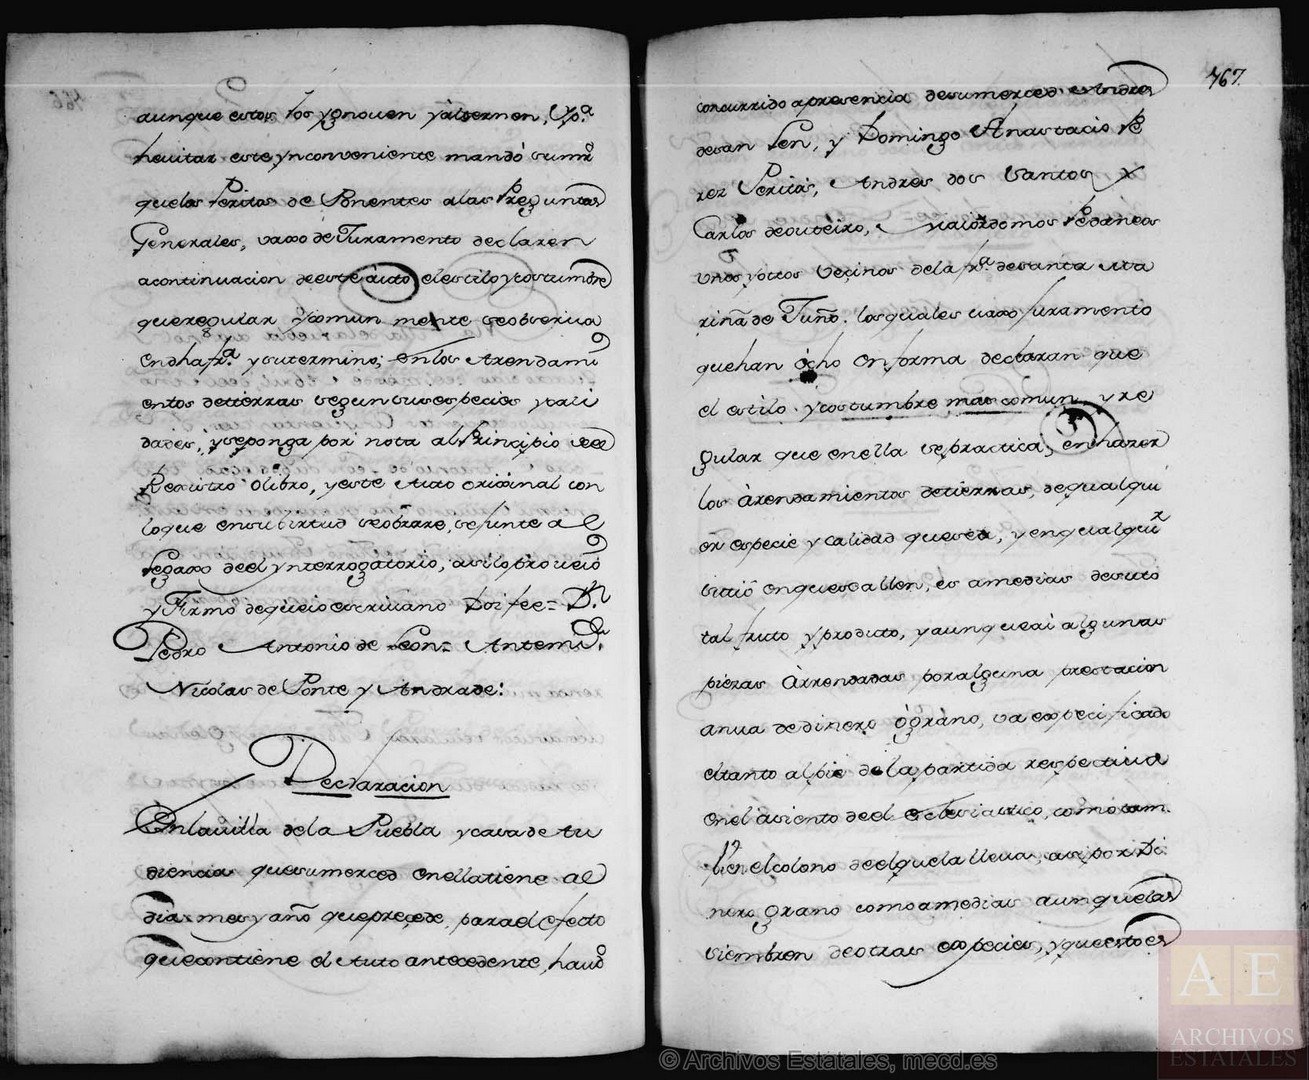 aunque estos los ygnoren yalternen, Y pa.
hevitar este ynconveniente mandó sumrd
quelos Peritos de Ponentes alas Preguntas
Generales, vaxo de Juramento declaren
acontinuacion deeste auto elestilo ycostumbre
queregular ycomun mente seobserua
endha fra. ysutermino, enlos Arendami
entos detierras segun sus especies ycali
dades, yseponga por nota alPrincipio deel
Rexistro olibro, yeste Auto original con
loque ensuvirtud seobrare, sejunte al
Legaxo deel ynterrogatorio, asilo proueió
yFirmó dequeio escriuano Doi fee= Dn.
Pedro Antonio de Leon= Antemi.
Nicolas de Ponte y Andrade:
Declaracion
Enlauilla dela Puebla ycasa de Au
diencia quesumerced enellatiene al
dia mes y año queprecede, parael efecto
quecontiene el Auto antecedente, hauido
767.
concurrido apresencia desumerced Andres
desan Len, y Domingo Anastacio Pe
rez Peritos, Andres dos Santos y
Carlos deouteiro, Maiordomos Pedaneos
Unos yotros Vecinos dela fra. desanta Ma
riña de Juño. losquales vaxo juramento
quehan echo enforma declaran que
el estilo ycostumbre mas comun y re
gular que enella sepractica, enhazer
los Arendamientos detierras, dequalqui
er especie y calidad quesea, yenqualquier
sitio enquesallen, es amedias desuto
tal fruto yproducto, yaunque ai algunas
piezas Arrendadas poralguna prestacion
anua dedinero ógrano, va expecificado
eltanto alpie dela partida respectiua
enel asiento deel eclesiastico, comotam
bien elcolono deelquela lleua, asi porDi
nero, grano comoamedias aunquelas
siembren deotras expecies, yqueestoes
© Archivos Estatales, mecd.es
AE
ARCHIVOS
ESTATALES